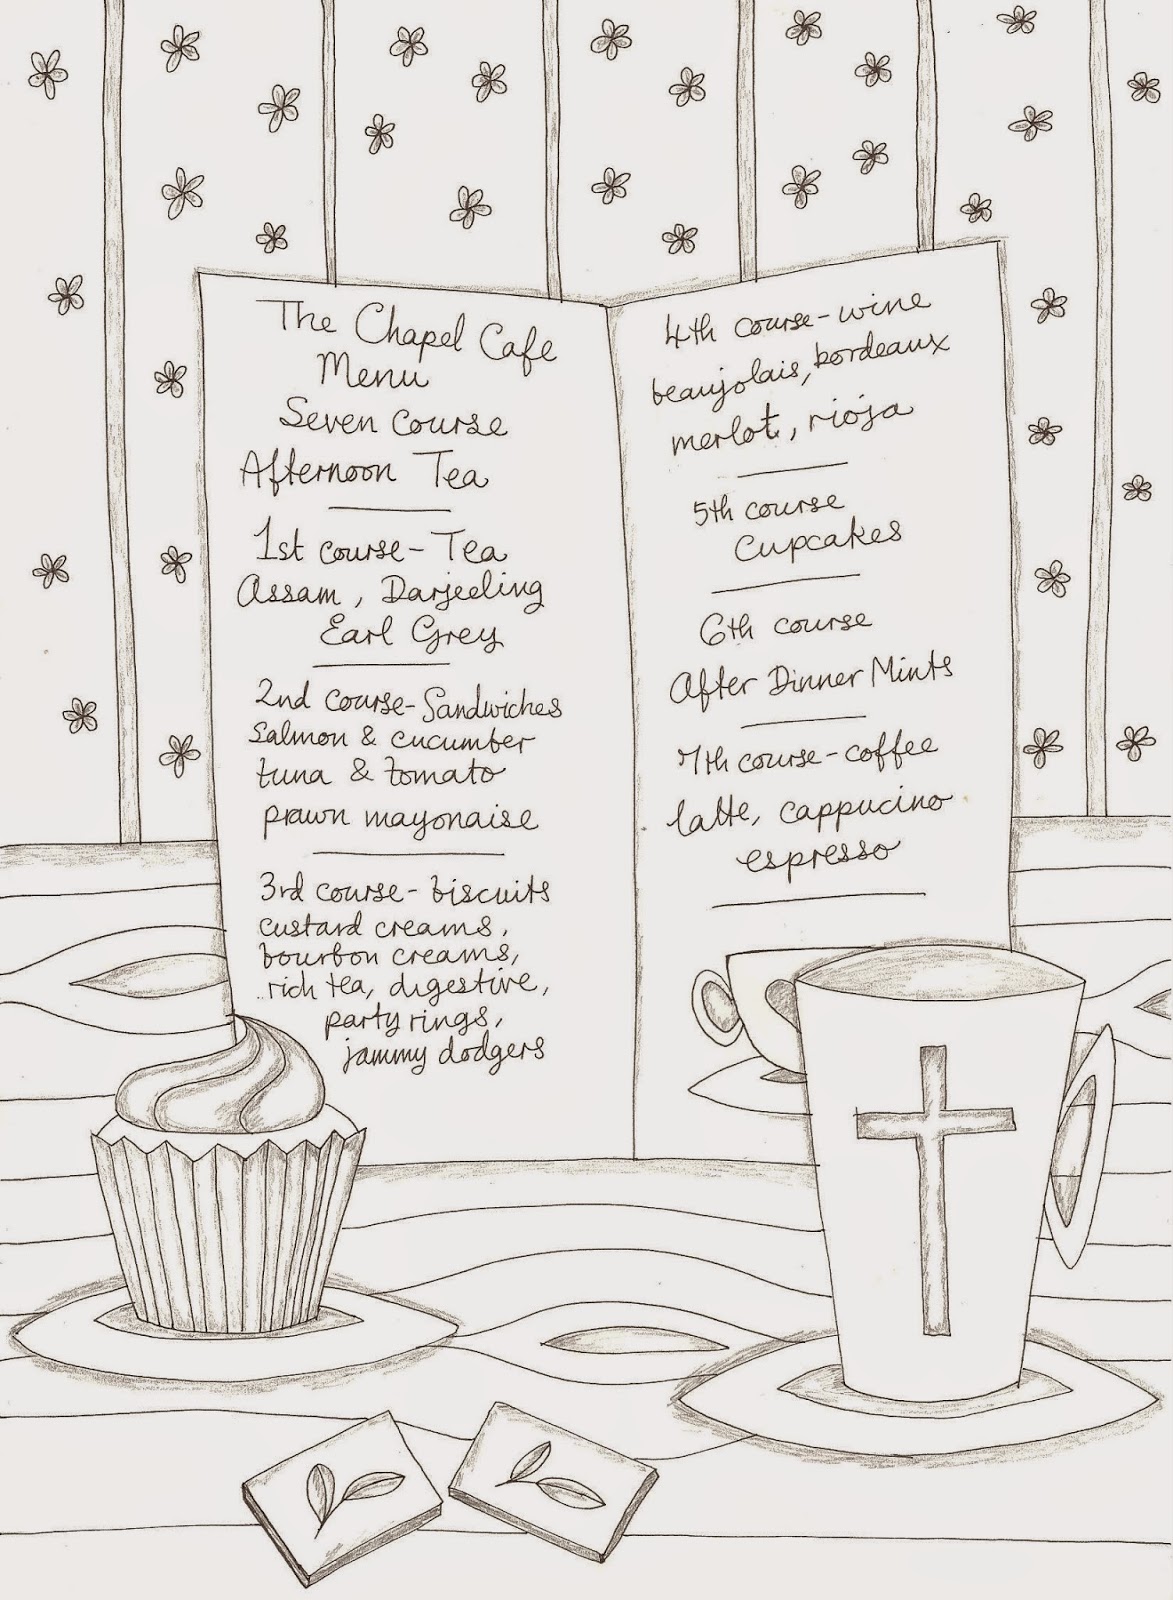 The Chapel Cafe
Menu
Seven Course
Afternoon Tea
1st course - Tea
Assam, Darjeeling
Earl Grey
2nd course - Sandwiches
Salmon & cucumber
tuna & tomato
prawn mayonaise
3rd course - biscuits
custard creams,
bourbon creams,
rich tea, digestive,
party rings,
jammy dodgers
4th course - wine
beaujolais, bordeaux
merlot, rioja
5th course
Cupcakes
6th course
After Dinner Mints
7th course - coffee
latte, cappucino
espresso